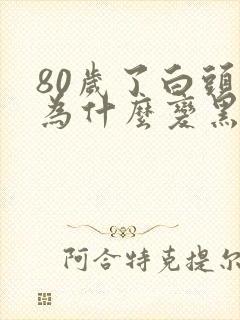 80歲了白頭
為什麼變黑
阿合特克提尔